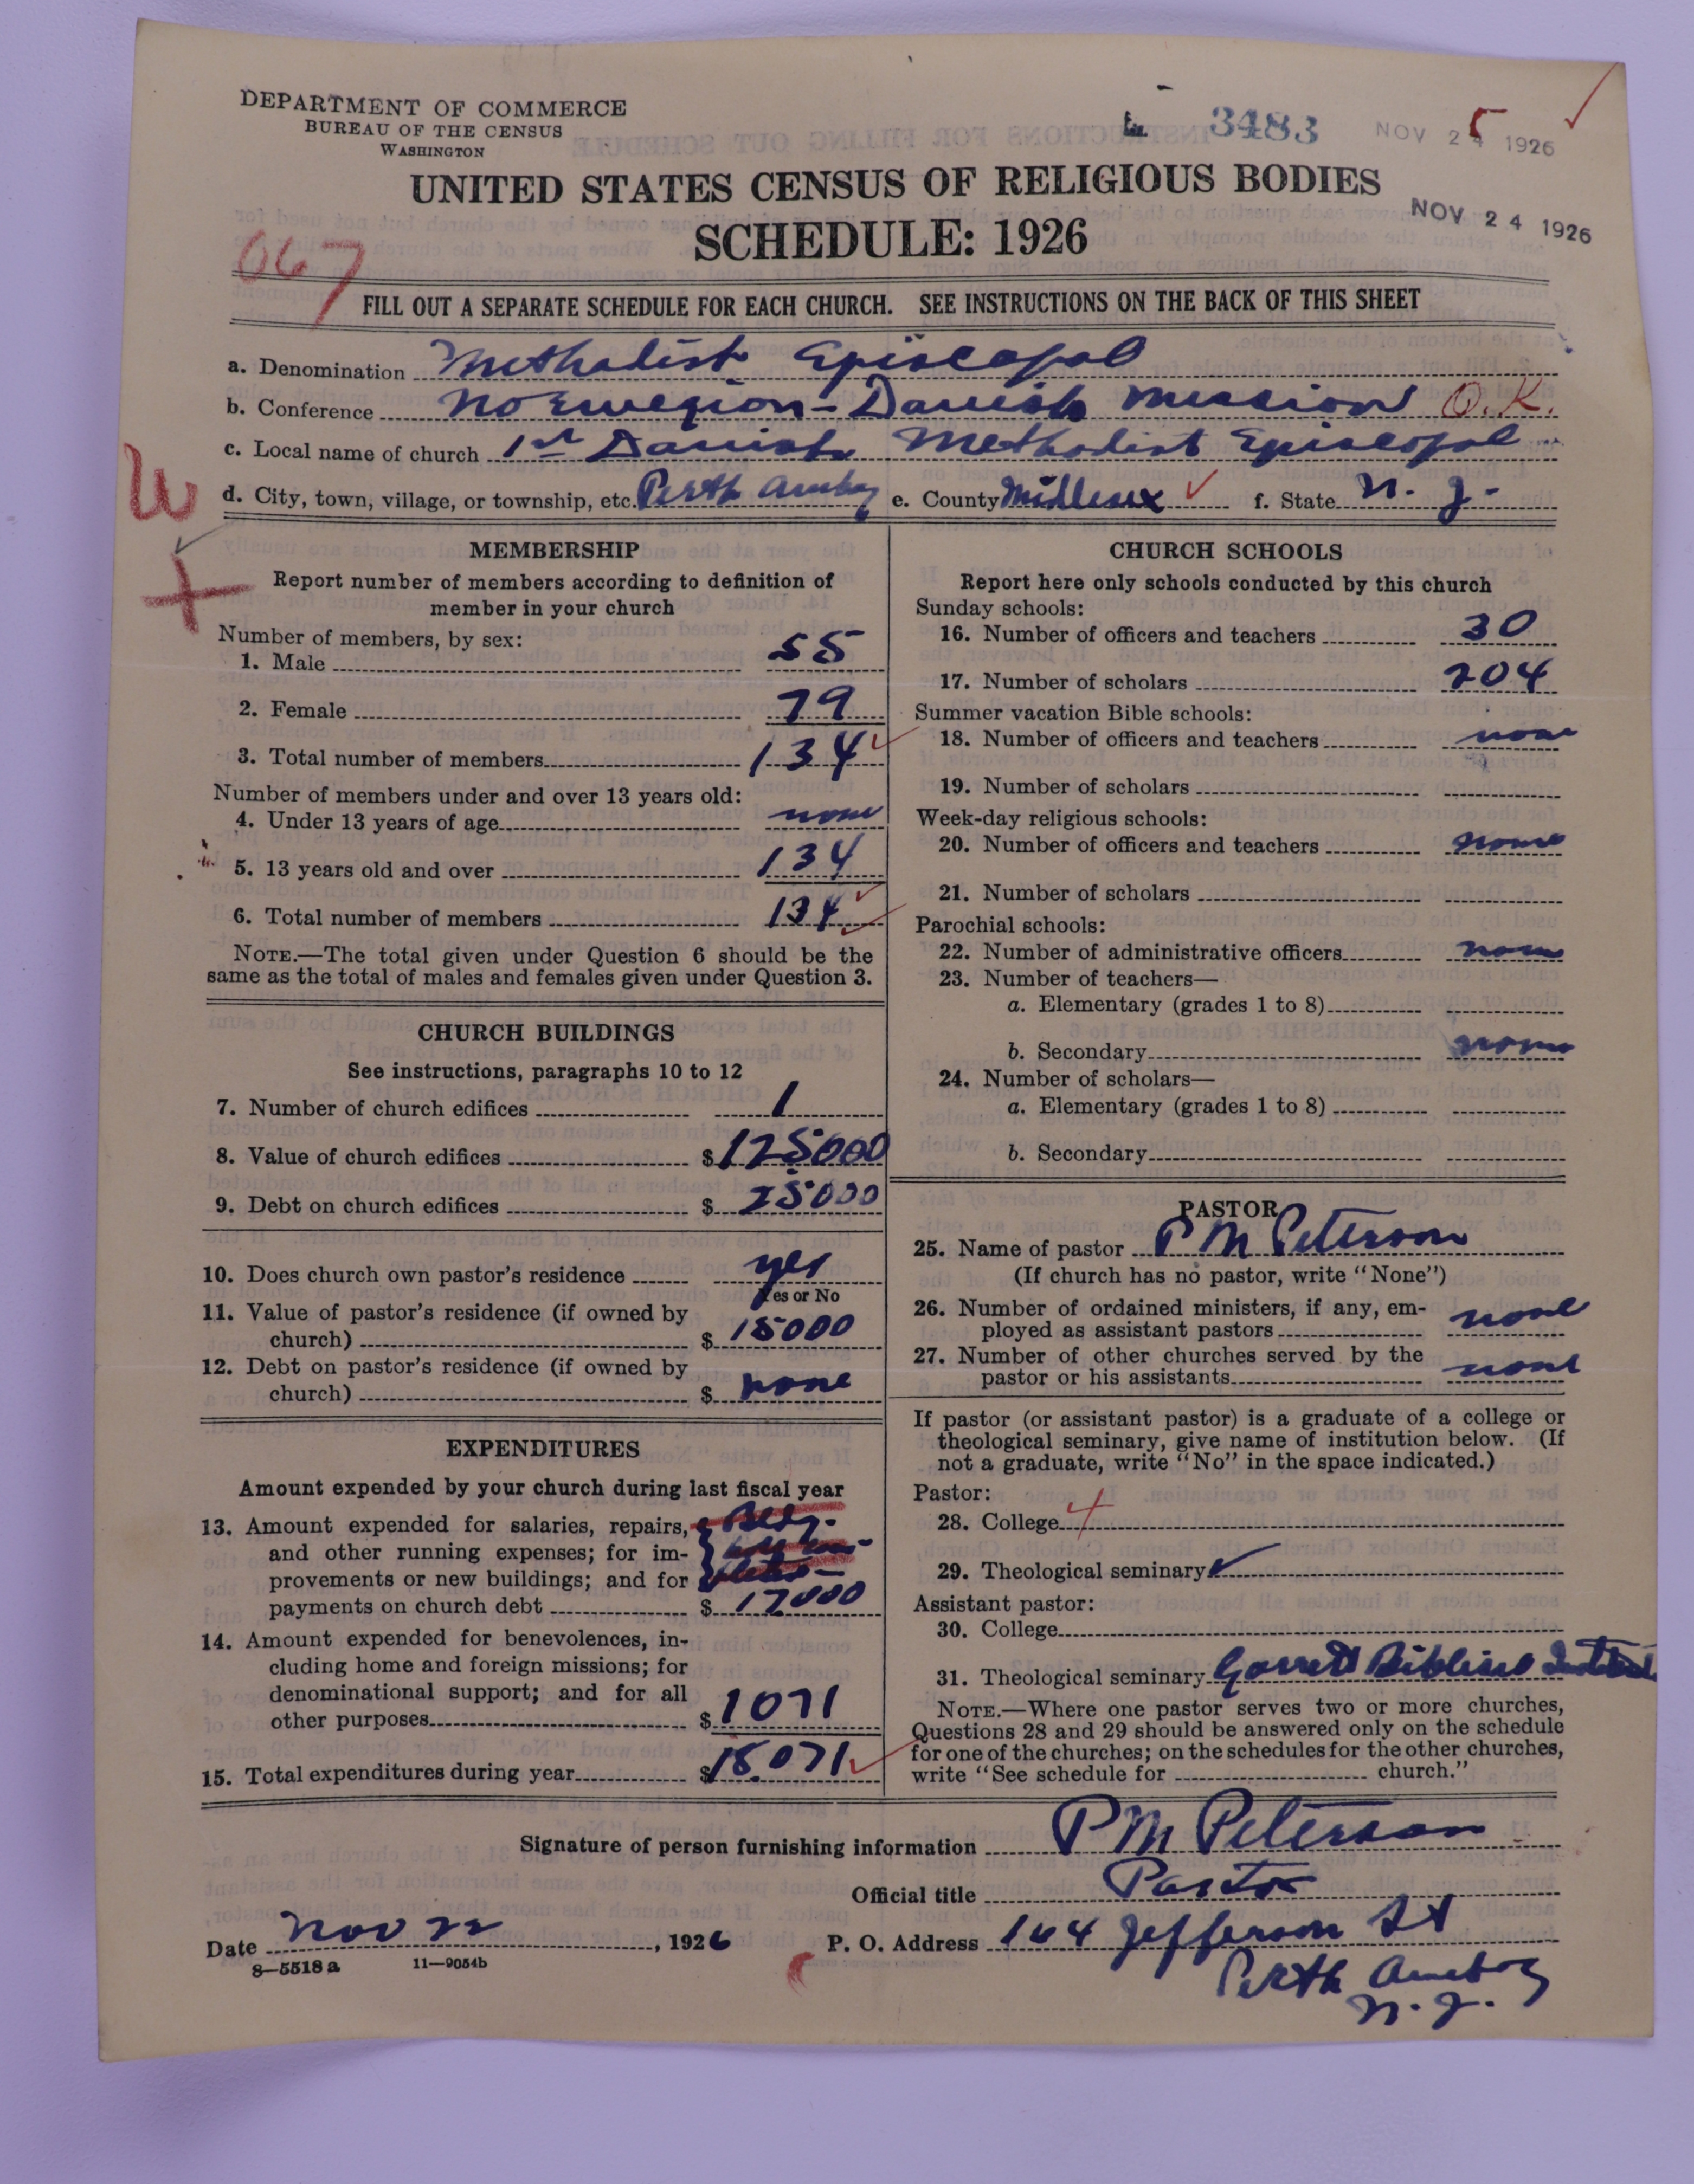 DEPARTMENT OF COMMERCE
BUREAU OF THE CENSUS
WASHINGTON
3483
NOV 2 1926
NOV 24 1926
UNITED STATES CENSUS OF RELIGIOUS BODIES
SCHEDULE: 1926
067
FILL OUT A SEPARATE SCHEDULE FOR EACH CHURCH. SEE INSTRUCTIONS ON THE BACK OF THIS SHEET
a. Denomination Methodist Episcopal
b. Conference Norwegian-Danish Mission O.K.
c. Local name of church 1st Danish Methodist Episcopal
W
d. City, town, village, or township, etc. Perth Amboy e. County Middlesex f. State N. J.
MEMBERSHIP
Report number of members according to definition of
member in your church
Number of members, by sex:
1. Male 55
2. Female 79
3. Total number of members 134
Number of members under and over 13 years old:
4. Under 13 years of age none
5. 13 years old and over 134
6. Total number of members 134
NOTE.—The total given under Question 6 should be the
same as the total of males and females given under Question 3.
CHURCH BUILDINGS
See instructions, paragraphs 10 to 12
7. Number of church edifices 1
8. Value of church edifices $125000
9. Debt on church edifices $ 25000
10. Does church own pastor's residence yes
Yes or No
11. Value of pastor's residence (if owned by
church) $ 15000
12. Debt on pastor's residence (if owned by
church) $ none
EXPENDITURES
Amount expended by your church during last fiscal year
13. Amount expended for salaries, repairs,
and other running expenses; for im-
provements or new buildings; and for
payments on church debt $ 17000
14. Amount expended for benevolences, in-
cluding home and foreign missions; for
denominational support; and for all
other purposes $ 1071
15. Total expenditures during year $18.071
CHURCH SCHOOLS
Report here only schools conducted by this church
Sunday schools:
16. Number of officers and teachers 30
17. Number of scholars 204
Summer vacation Bible schools:
18. Number of officers and teachers none
19. Number of scholars
Week-day religious schools:
20. Number of officers and teachers none
21. Number of scholars
Parochial schools:
22. Number of administrative officers none
23. Number of teachers—
a. Elementary (grades 1 to 8)
b. Secondary none
24. Number of scholars—
a. Elementary (grades 1 to 8)
b. Secondary
PASTOR
25. Name of pastor P M Peterson
(If church has no pastor, write "None")
26. Number of ordained ministers, if any, em-
ployed as assistant pastors none
27. Number of other churches served by the
pastor or his assistants none
If pastor (or assistant pastor) is a graduate of a college or
theological seminary, give name of institution below. (If
not a graduate, write "No" in the space indicated.)
Pastor:
28. College
29. Theological seminary
Assistant pastor:
30. College
31. Theological seminary Garrett Biblical Institute
NOTE.—Where one pastor serves two or more churches,
Questions 28 and 29 should be answered only on the schedule
for one of the churches; on the schedules for the other churches,
write "See schedule for church."
Signature of person furnishing information P M Peterson
Official title Pastor
Date Nov 22, 1926 P. O. Address 164 Jefferson St
8—5518 a 11—9054b
Perth Amboy
N. J.